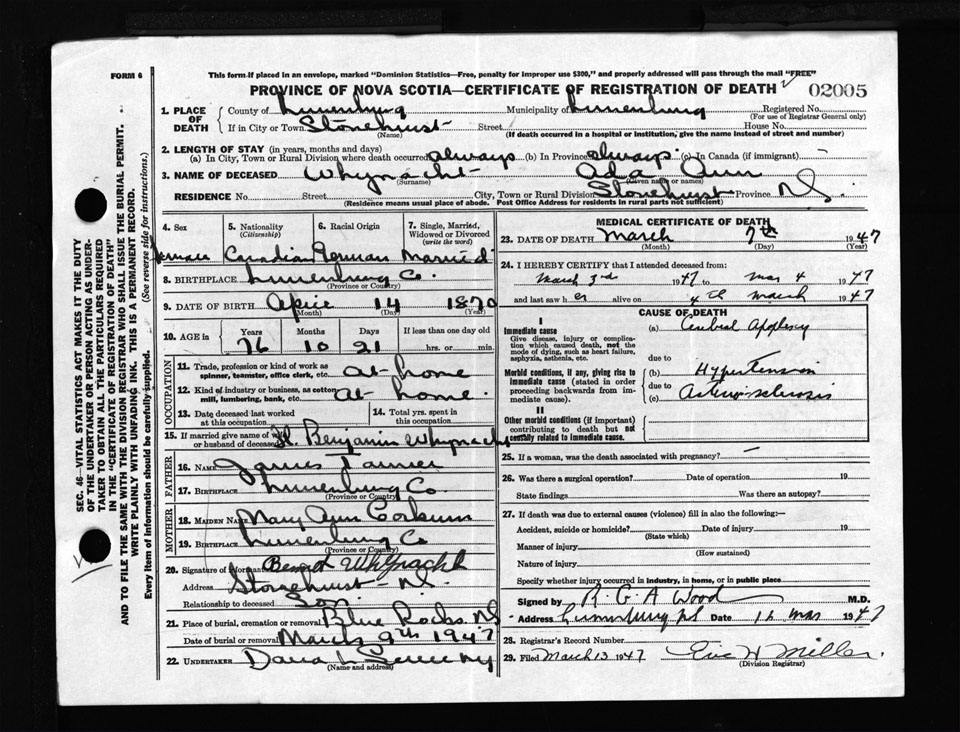 FORM 6
This form if placed in an envelope, marked "Dominion Statistics—Free, penalty for improper use $300," and properly addressed will pass through the mail "FREE"
PROVINCE OF NOVA SCOTIA—CERTIFICATE OF REGISTRATION OF DEATH 02005
1. PLACE OF DEATH County of Lunenburg Municipality of Lunenburg Registered No.
(For use of Registrar General only)
If in City or Town Stonehurst Street House No.
(Name) (If death occurred in a hospital or institution, give the name instead of street and number)
2. LENGTH OF STAY (in years, months and days)
(a) In City, Town or Rural Division where death occurred always (b) In Province always (c) In Canada (if immigrant)
3. NAME OF DECEASED Whynacht Ada Ann
(Surname) (Given name or names)
RESIDENCE No. Street City, Town or Rural Division Stonehurst Province N.S.
(Residence means usual place of abode. Post Office Address for residents in rural parts not sufficient)
4. Sex 5. Nationality (Citizenship) 6. Racial Origin 7. Single, Married, Widowed or Divorced (write the word)
female Canadian German Married
8. BIRTHPLACE Lunenburg Co.
(Province or Country)
9. DATE OF BIRTH April 14 1870
(Month) (Day) (Year)
10. AGE in Years Months Days If less than one day old
76 10 21 hrs. or min.
OCCUPATION
11. Trade, profession or kind of work as spinner, teamster, office clerk, etc. at home
12. Kind of industry or business, as cotton mill, lumbering, bank, etc. at home
13. Date deceased last worked at this occupation 14. Total yrs. spent in this occupation
15. If married give name of wife or husband of deceased H. Benjamin Whynacht
FATHER
16. NAME James Tanner
17. BIRTHPLACE Lunenburg Co.
(Province or Country)
MOTHER
18. MAIDEN NAME Mary Ann Corkum
19. BIRTHPLACE Lunenburg Co
(Province or Country)
20. Signature of Informant Whynacht
Address Stonehurst N.S.
Relationship to deceased Son
21. Place of burial, cremation or removal Blue Rocks N.S.
Date of burial or removal March 9th 1947
22. UNDERTAKER
(Name and address)
MEDICAL CERTIFICATE OF DEATH
23. DATE OF DEATH March 7th 1947
(Month) (Day) (Year)
24. I HEREBY CERTIFY that I attended deceased from:
March 3rd 1947 to Mar 4 1947
and last saw her alive on 4th March 1947
CAUSE OF DEATH
I
Immediate cause (a) Cerebral Apoplexy
Give disease, injury or complication which caused death, not the mode of dying, such as heart failure, asphyxia, asthenia, etc.
due to
Morbid conditions, if any, giving rise to immediate cause (stated in order proceeding backwards from immediate cause).
(b) Hypertension
due to
(c) Arteriosclerosis
II
Other morbid conditions (if important) contributing to death but not causally related to immediate cause.
25. If a woman, was the death associated with pregnancy? —
26. Was there a surgical operation? Date of operation 19
State findings Was there an autopsy?
27. If death was due to external causes (violence) fill in also the following:—
Accident, suicide or homicide? Date of injury 19
(State which)
Manner of injury
(How sustained)
Nature of injury
Specify whether injury occurred in industry, in home, or in public place
Signed by R. G. A Wood M.D.
Address Lunenburg NS Date 12 Mar 1947
28. Registrar's Record Number
29. Filed March 13 1947 Eric W Miller
(Division Registrar)
SEC. 46—VITAL STATISTICS ACT MAKES IT THE DUTY
OF THE UNDERTAKER OR PERSON ACTING AS UNDER-
TAKER TO OBTAIN ALL THE PARTICULARS REQUIRED
IN THE "CERTIFICATE OF REGISTRATION OF DEATH"
AND TO FILE THE SAME WITH THE DIVISION REGISTRAR WHO SHALL ISSUE THE BURIAL PERMIT.
WRITE PLAINLY WITH UNFADING INK. THIS IS A PERMANENT RECORD.
Every item of information should be carefully supplied. (See reverse side for instructions.)